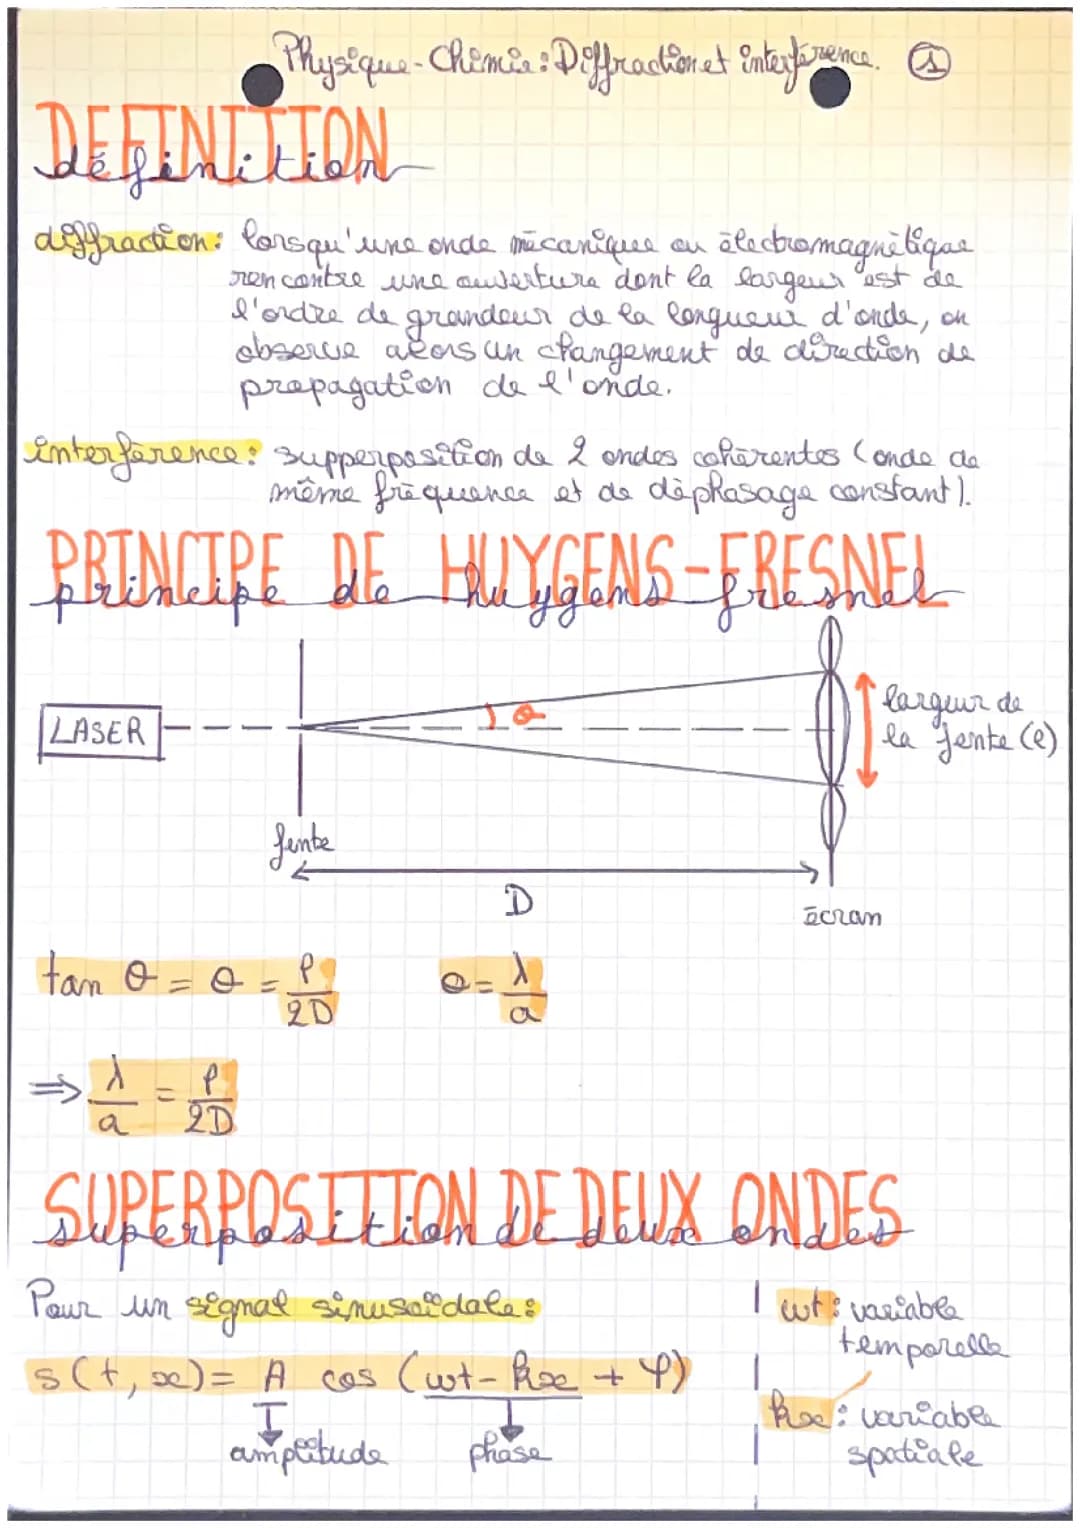 Physique-Chimie : Diffraction et interférence. ①
DEFINITION
définition
diffraction : lorsqu'une onde mécanique ou électromagnétique
rencontre une ouverture dont la largeur est de
l'ordre de grandeur de la longueur d'onde, on
observe alors un changement de direction de
propagation de l'onde.
interférence : supperposition de 2 ondes cohérentes (onde de
même fréquence et de déphasage constant).
PRINCIPE DE HUYGENS-FRESNEL
principe de huygens-fresnel
LASER
θ
largeur de
la fente (l)
fente
D
écran
tan θ = θ = l/2D
θ = λ/a
⇒ λ/a = l/2D
SUPERPOSITION DE DEUX ONDES
superposition de deux ondes
Pour un signal sinusoïdale :
s(t, x) = A cos (ωt - kx + φ)
amplitude
phase
ωt : variable
temporelle
kx : variable
spatiale